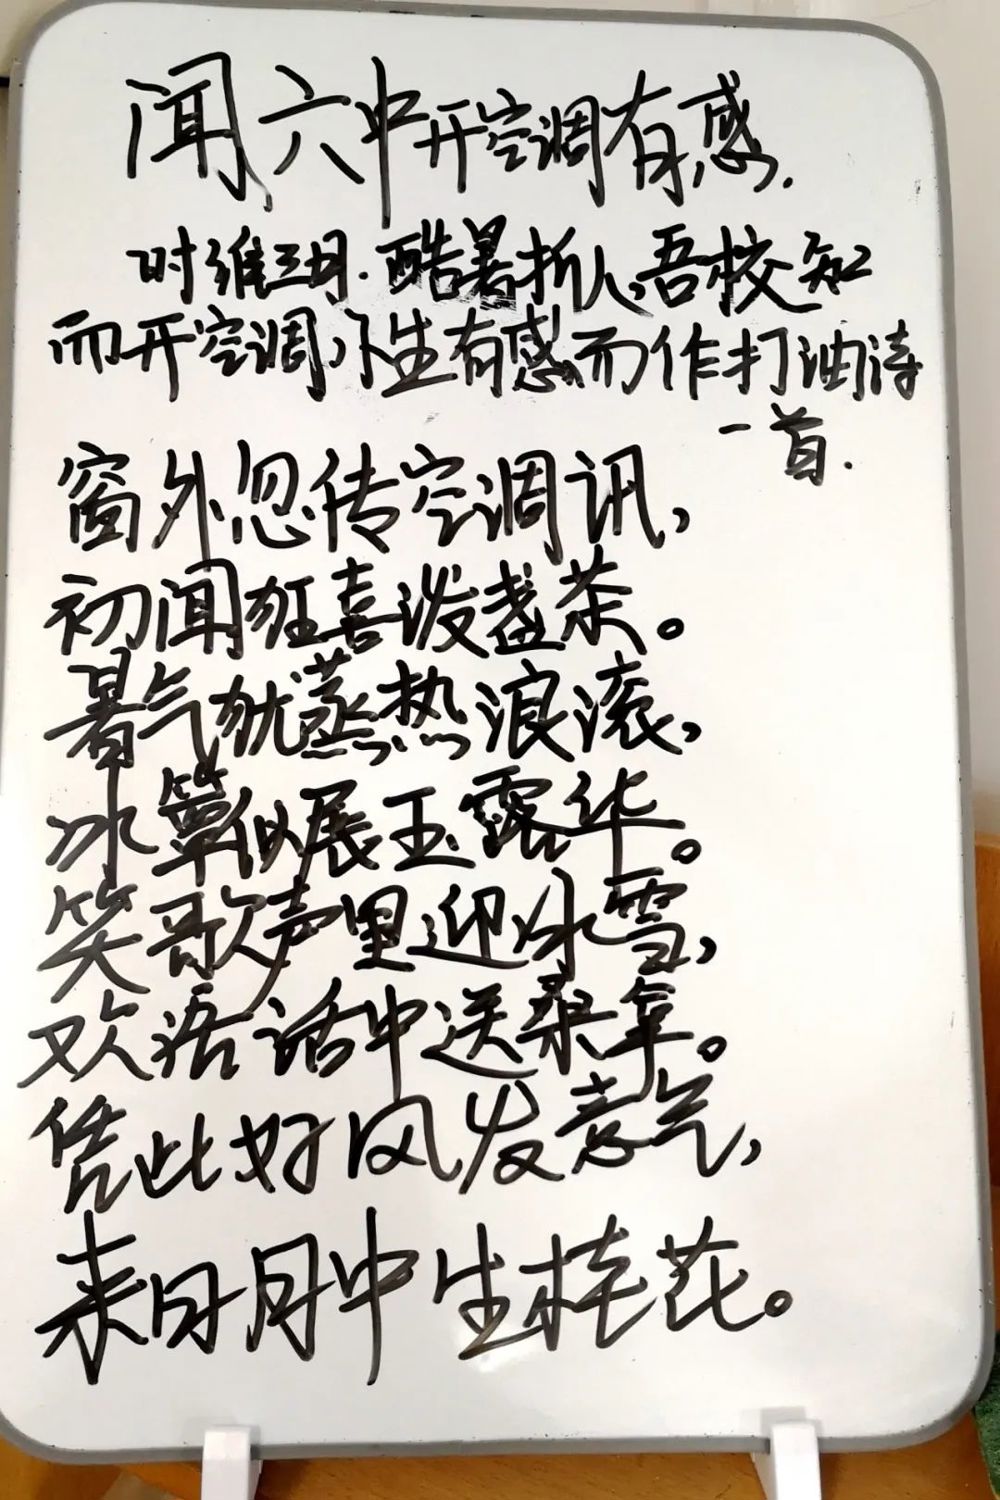 闻六中开空调有感.
时维三月.酷暑折人,吾校知
而开空调,小生有感而作打油诗
一首.
窗外忽传空调讯,
初闻狂喜泼盏茶。
暑气犹蒸热浪滚,
冰簟似展玉露华。
笑歌声里迎冰雪,
欢语话中送桑拿。
凭此好风发意气,
来日月中生桂花。